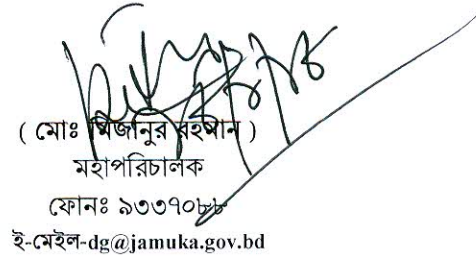 ( মোঃ মিজানুর রহমান )
মহাপরিচালক
ফোনঃ ৯৩৩৭০৮৮
ই-মেইল-dg@jamuka.gov.bd